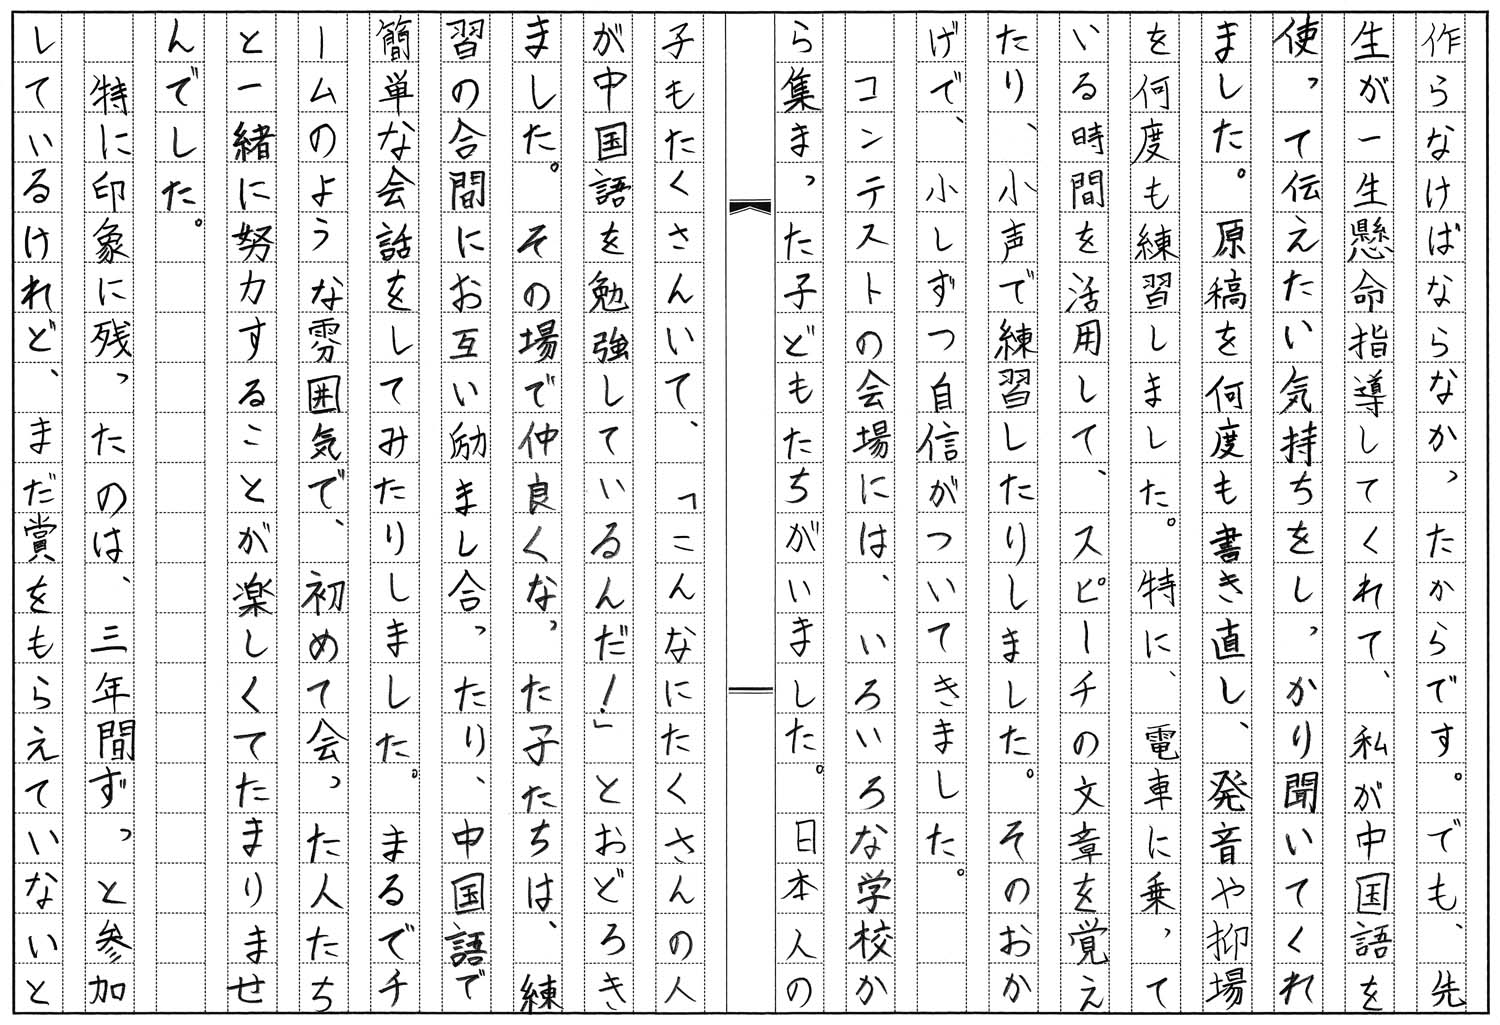 作らなけばならなかったからです。でも、先
生が一生懸命指導してくれて、私が中国語を
使って伝えたい気持ちをしっかり聞いてくれ
ました。原稿を何度も書き直し、発音や抑場
を何度も練習しました。特に、電車に乗って
いる時間を活用して、スピーチの文章を覚え
たり、小声で練習したりしました。そのおか
げで、小しずつ自信がついてきました。
コンテストの会場には、いろいろな学校か
ら集まった子どもたちがいました。日本人の
子もたくさんいて、「こんなにたくさんの人
が中国語を勉強しているんだ!」とおどろき
ました。その場で仲良くなった子たちは、練
習の合間にお互い励まし合ったり、中国語で
簡単な会話をしてみたりしました。まるでチ
ームのような雰囲気で、初めて会った人たち
と一緒に努力することが楽しくてたまりませ
んでした。
特に印象に残ったのは、三年間ずっと参加
しているけれど、まだ賞をもらえていないと